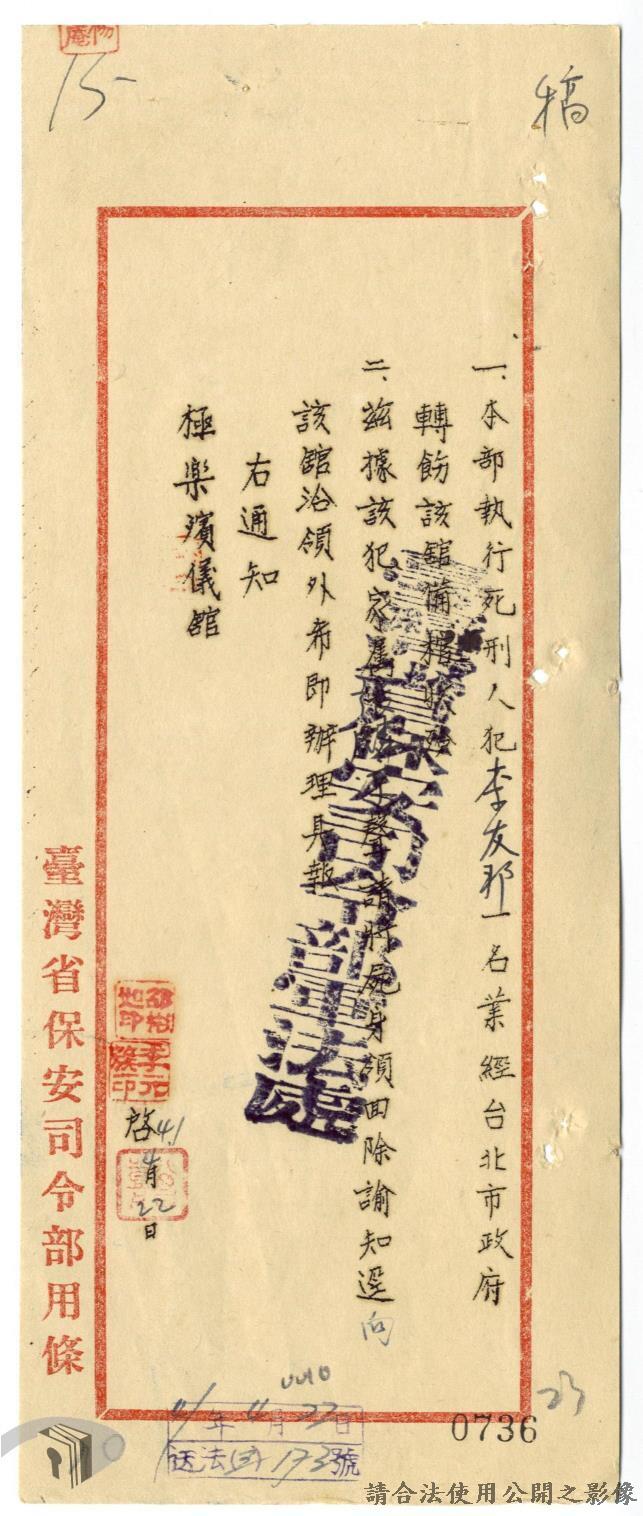 稿
15
一、本部執行死刑人犯李友邦一名業經台北市政府
轉飭該舘備棺收殮
二、茲據該犯家屬聲請將屍身領回除諭知逕向
該舘洽領外希即辦理具報
右通知
極樂殯儀舘
啓
41
4月22日
臺灣省保安司令部軍法處
臺灣省保安司令部用條
0010
41年4月23日
法 173號
0736
23
請合法使用公開之影像